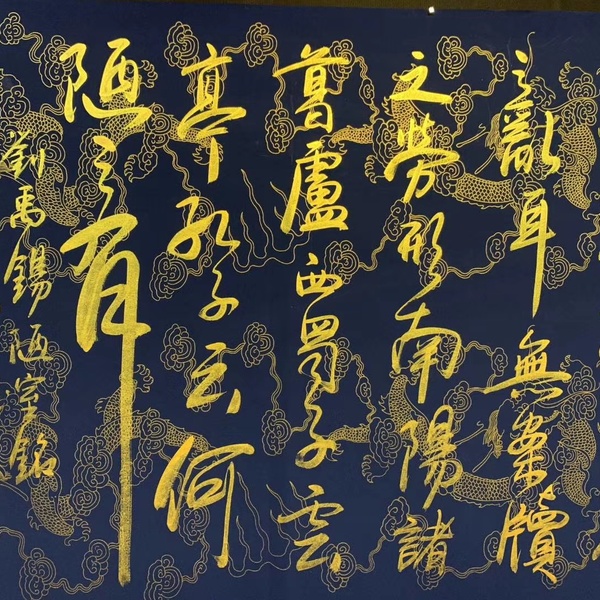 之亂耳無案牘
之勞形南陽諸
葛廬西蜀子雲
亭孔子云何
陋之有
劉禹錫陋室銘